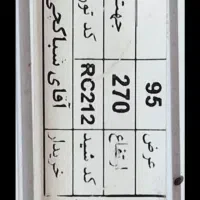 عرض 95
ارتفاع 270 جهت
کد شید RC212 کد تور
خریدار آقای شباکچی